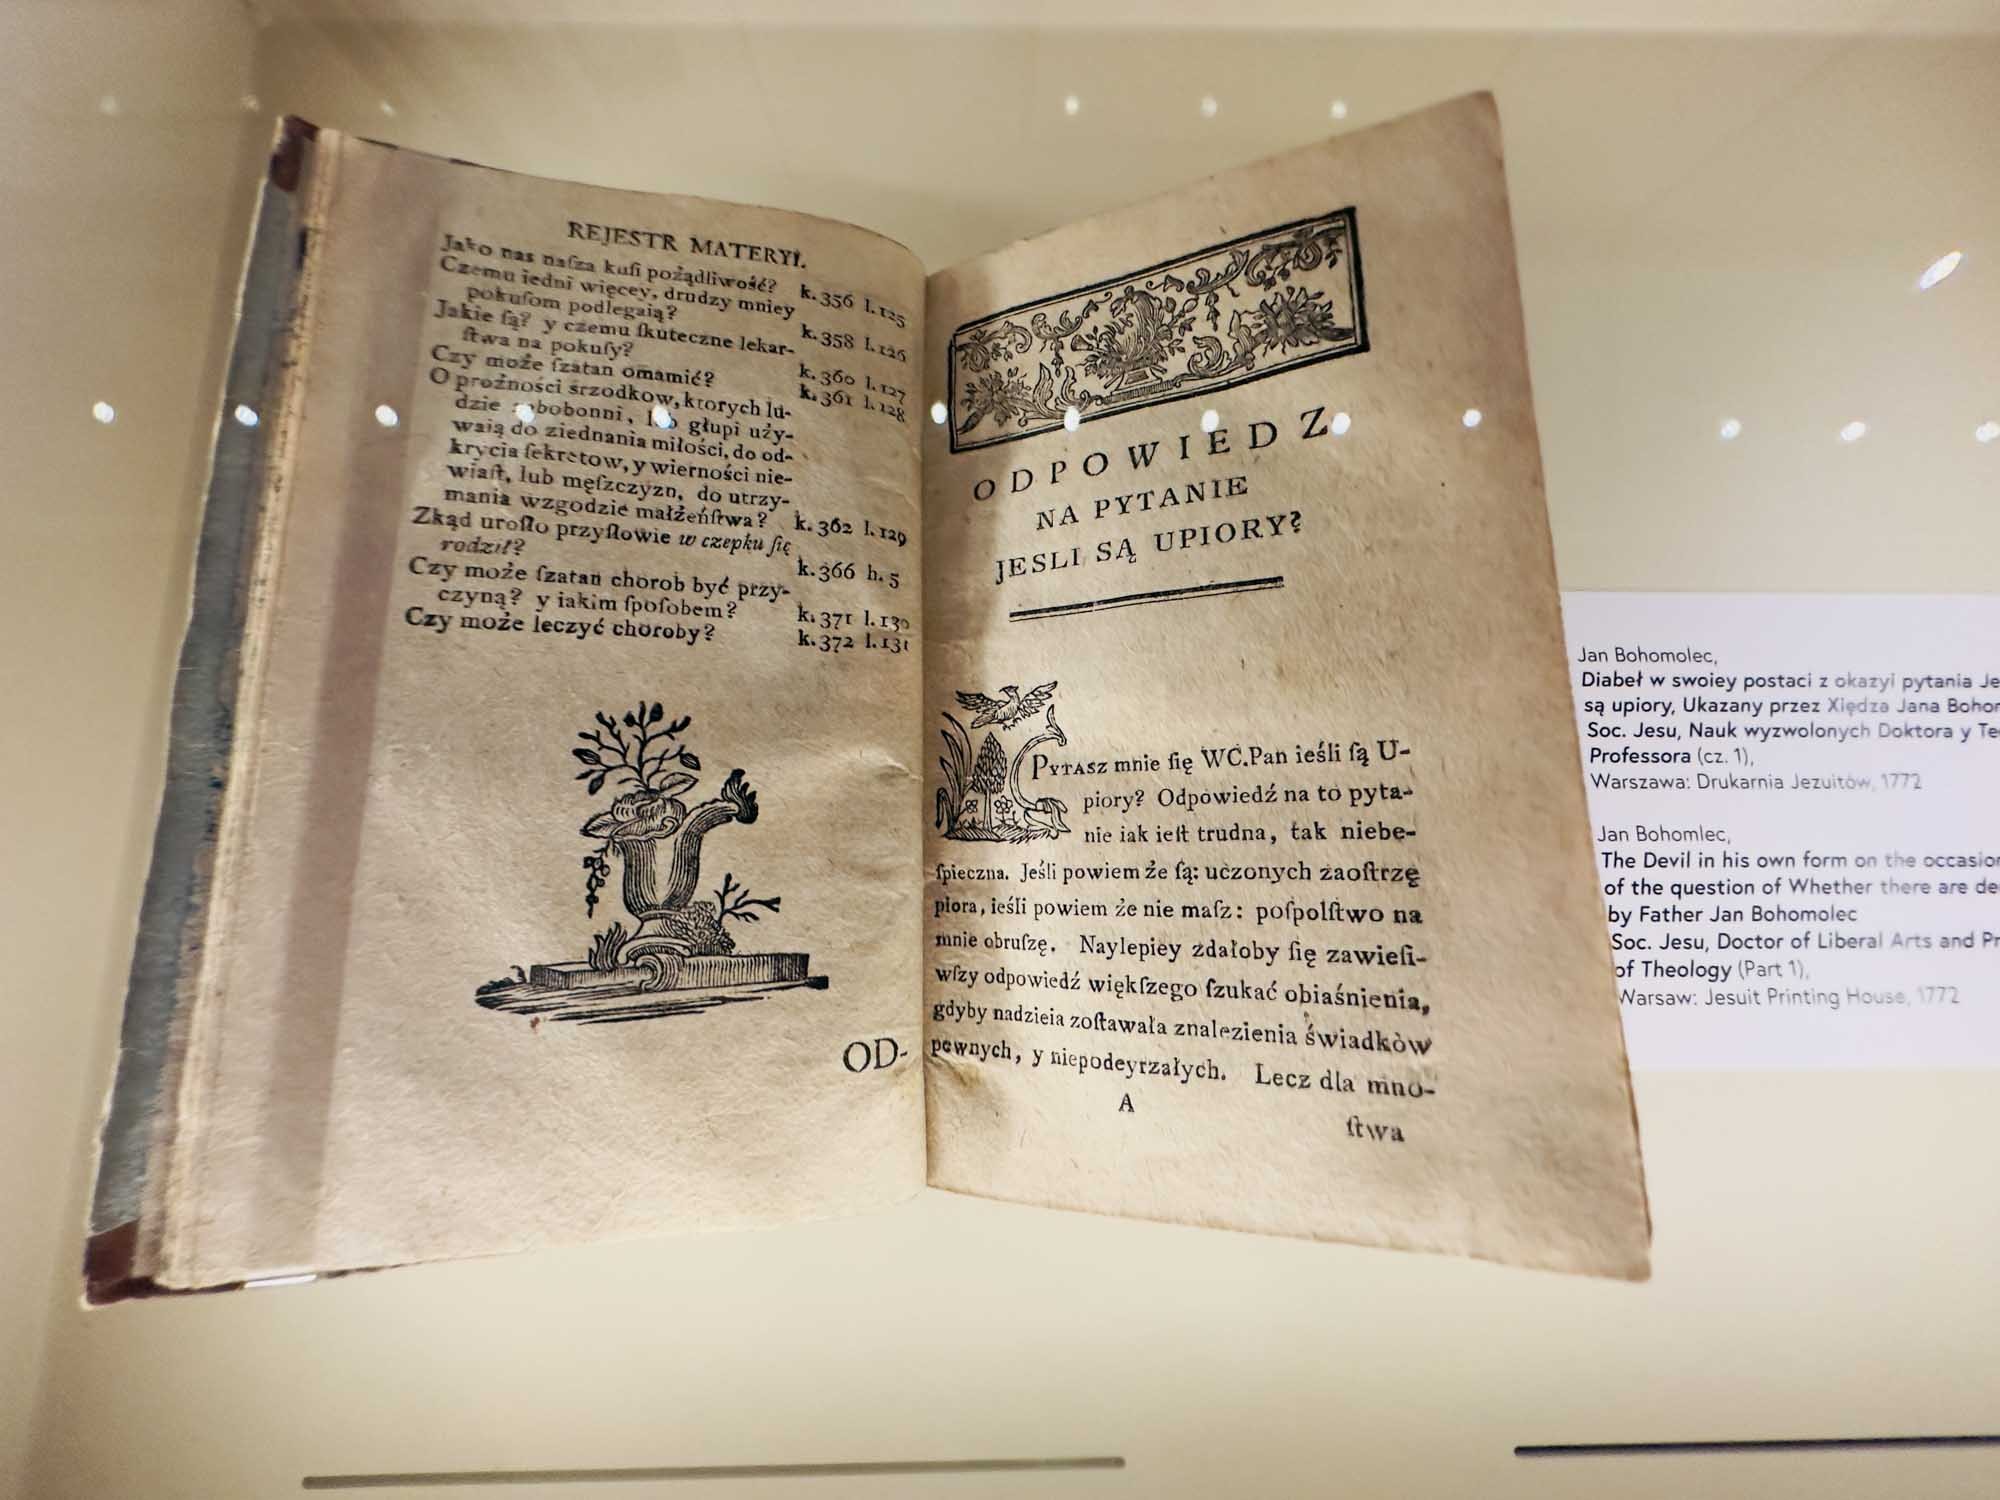 REJESTR MATERYI.
Jako nas naſza kuſi pożądliwość? k. 356 l. 125
Czemu iedni więcey, drudzy mniey
pokuſom podlegaią? k. 358 l. 126
Jakie ſą? y czemu ſkuteczne lekar-
ſtwa na pokuſy? k. 360 l. 127
Czy może ſzatan omamić? k. 361 l. 128
O prożności śrzodkow, ktorych lu-
dzie zabobonni, lub głupi uży-
waią do ziednania miłości, do od-
krycia ſekretow, y wierności nie-
wiaſt, lub męſzczyzn, do utrzy-
mania wzgodzie małżeńſtwa? k. 362 l. 129
Zkąd uroſło przyſłowie w czepku ſię
rodził? k. 366 h. 5
Czy może ſzatan chorob być przy-
czyną? y iakim ſpoſobem? k. 371 l. 130
Czy może leczyć choroby? k. 372 l. 131
OD-
ODPOWIEDZ
NA PYTANIE
JESLI SĄ UPIORY?
PYTASZ mnie ſię WC.Pan ieśli ſą U-
piory? Odpowiedź na to pyta-
nie iak ieſt trudna, tak niebe-
ſpieczna. Jeśli powiem że ſą: uczonych zaoſtrzę
piora, ieśli powiem że nie maſz: poſpolſtwo na
mnie obruſzę. Naylepiey zdałoby ſię zawieſi-
wſzy odpowiedź więkſzego ſzukać obiaśnienia,
gdyby nadzieia zoſtawała znalezienia świadków
pewnych, y niepodeyrzałych. Lecz dla mno-
A
ſtwa
Jan Bohomolec,
Diabeł w swoiey postaci z okazyi pytania Je
są upiory, Ukazany przez Xiędza Jana Bohom
Soc. Jesu, Nauk wyzwolonych Doktora y Te
Professora (cz. 1),
Warszawa: Drukarnia Jezuitów, 1772
Jan Bohomlec,
The Devil in his own form on the occasion
of the question of Whether there are de
by Father Jan Bohomolec
Soc. Jesu, Doctor of Liberal Arts and Pr
of Theology (Part 1),
Warsaw: Jesuit Printing House, 1772